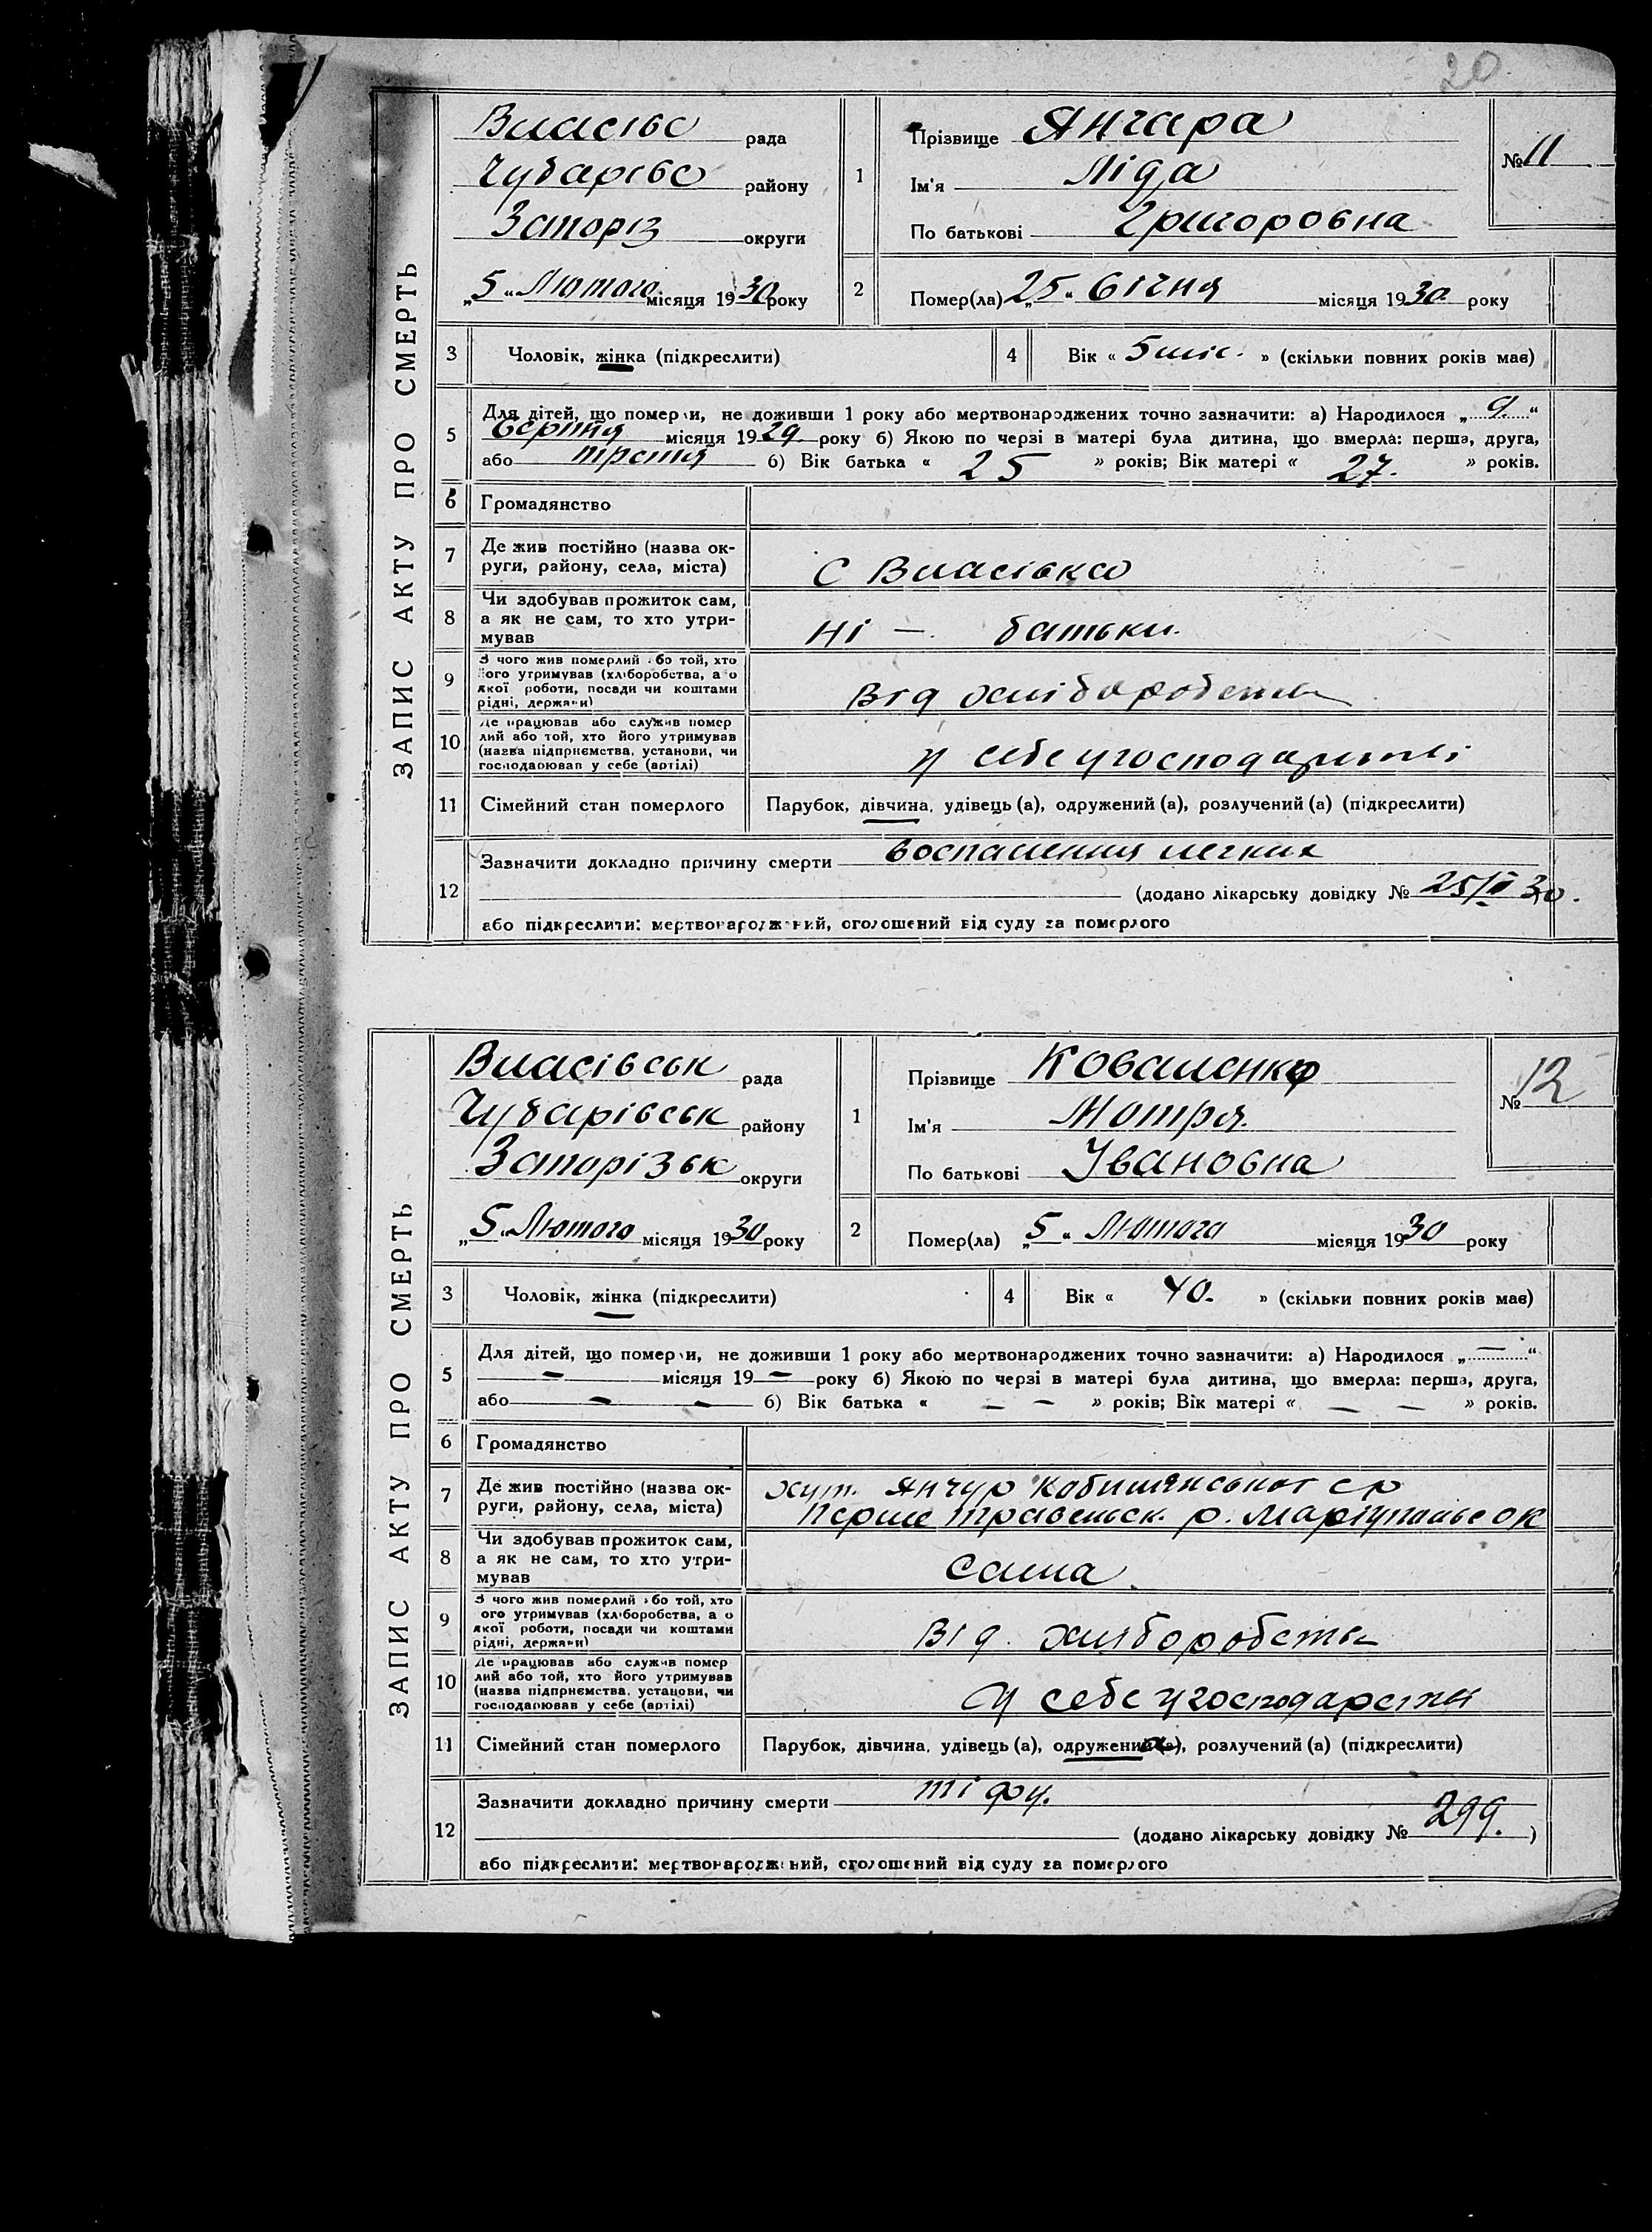 20
ЗАПИС АКТУ ПРО СМЕРТЬ
Власівс рада
Чубарівс району
Запоріз округи
„5“ Лютого місяця 1930 року
1
Прізвище Янчара
Ім'я Ліда
По батькові Григоровна
№ 11
2
Помер(ла) „25“ Січня місяця 1930 року
3 Чоловік, жінка (підкреслити)
4 Вік « 5 міс. » (скільки повних років має)
5
Для дітей, що померли, не доживши 1 року або мертвонароджених точно зазначити: а) Народилося „9“
Серпня місяця 1929 року б) Якою по черзі в матері була дитина, що вмерла: перша, друга,
або третя б) Вік батька « 25 » років; Вік матері « 27. » років.
6 Громадянство
7
Де жив постійно (назва ок-
руги, району, села, міста)
С Власівка
8
Чи здобував прожиток сам,
а як не сам, то хто утри-
мував
Ні — батьки.
9
З чого жив померлий або той, хто
його утримував (хліборобства, а о
якої роботи, посади чи коштами
рідні, держави)
Від хліборобств
10
Де працював або служив помер
лий або той, хто його утримував
(назва підприємства, установи, чи
господарював у себе (артілі)
у себе у господарстві
11 Сімейний стан померлого
Парубок, дівчина, удівець (а), одружений (а), розлучений (а) (підкреслити)
12
Зазначити докладно причину смерти воспаления легких
(додано лікарську довідку № 25/II 30.
або підкреслити: мертвонароджений, оголошений від суду за померлого
ЗАПИС АКТУ ПРО СМЕРТЬ
Власівськ рада
Чубарівськ району
Запорізьк округи
„5“ Лютого місяця 1930 року
1
Прізвище Коваленко
Ім'я Мотря.
По батькові Івановна
№ 12
2
Помер(ла) „5“ Лютого місяця 1930 року
3 Чоловік, жінка (підкреслити)
4 Вік « 40. » (скільки повних років має)
5
Для дітей, що померли, не доживши 1 року або мертвонароджених точно зазначити: а) Народилося „—“
— місяця 19 — року б) Якою по черзі в матері була дитина, що вмерла: перша, друга,
або — — б) Вік батька « — — » років; Вік матері « — — » років.
6 Громадянство
7
Де жив постійно (назва ок-
руги, району, села, міста)
хут. Янчур с р
Перше травенськ. р. ок
8
Чи здобував прожиток сам,
а як не сам, то хто утри-
мував
Сама.
9
З чого жив померлий або той, хто
ого утримував (хліборобства, а о
якої роботи, посади чи коштами
рідні, держави)
Від. хліборобств
10
Де працював або служив помер
лий або той, хто його утримував
(назва підприємства, установи, чи
господарював у себе (артілі)
у себе у господарстві
11 Сімейний стан померлого
Парубок, дівчина, удівець (а), одружена), розлучений (а) (підкреслити)
12
Зазначити докладно причину смерти тіфу.
(додано лікарську довідку № 299. )
або підкреслити: мертвонароджений, оголошений від суду за померлого